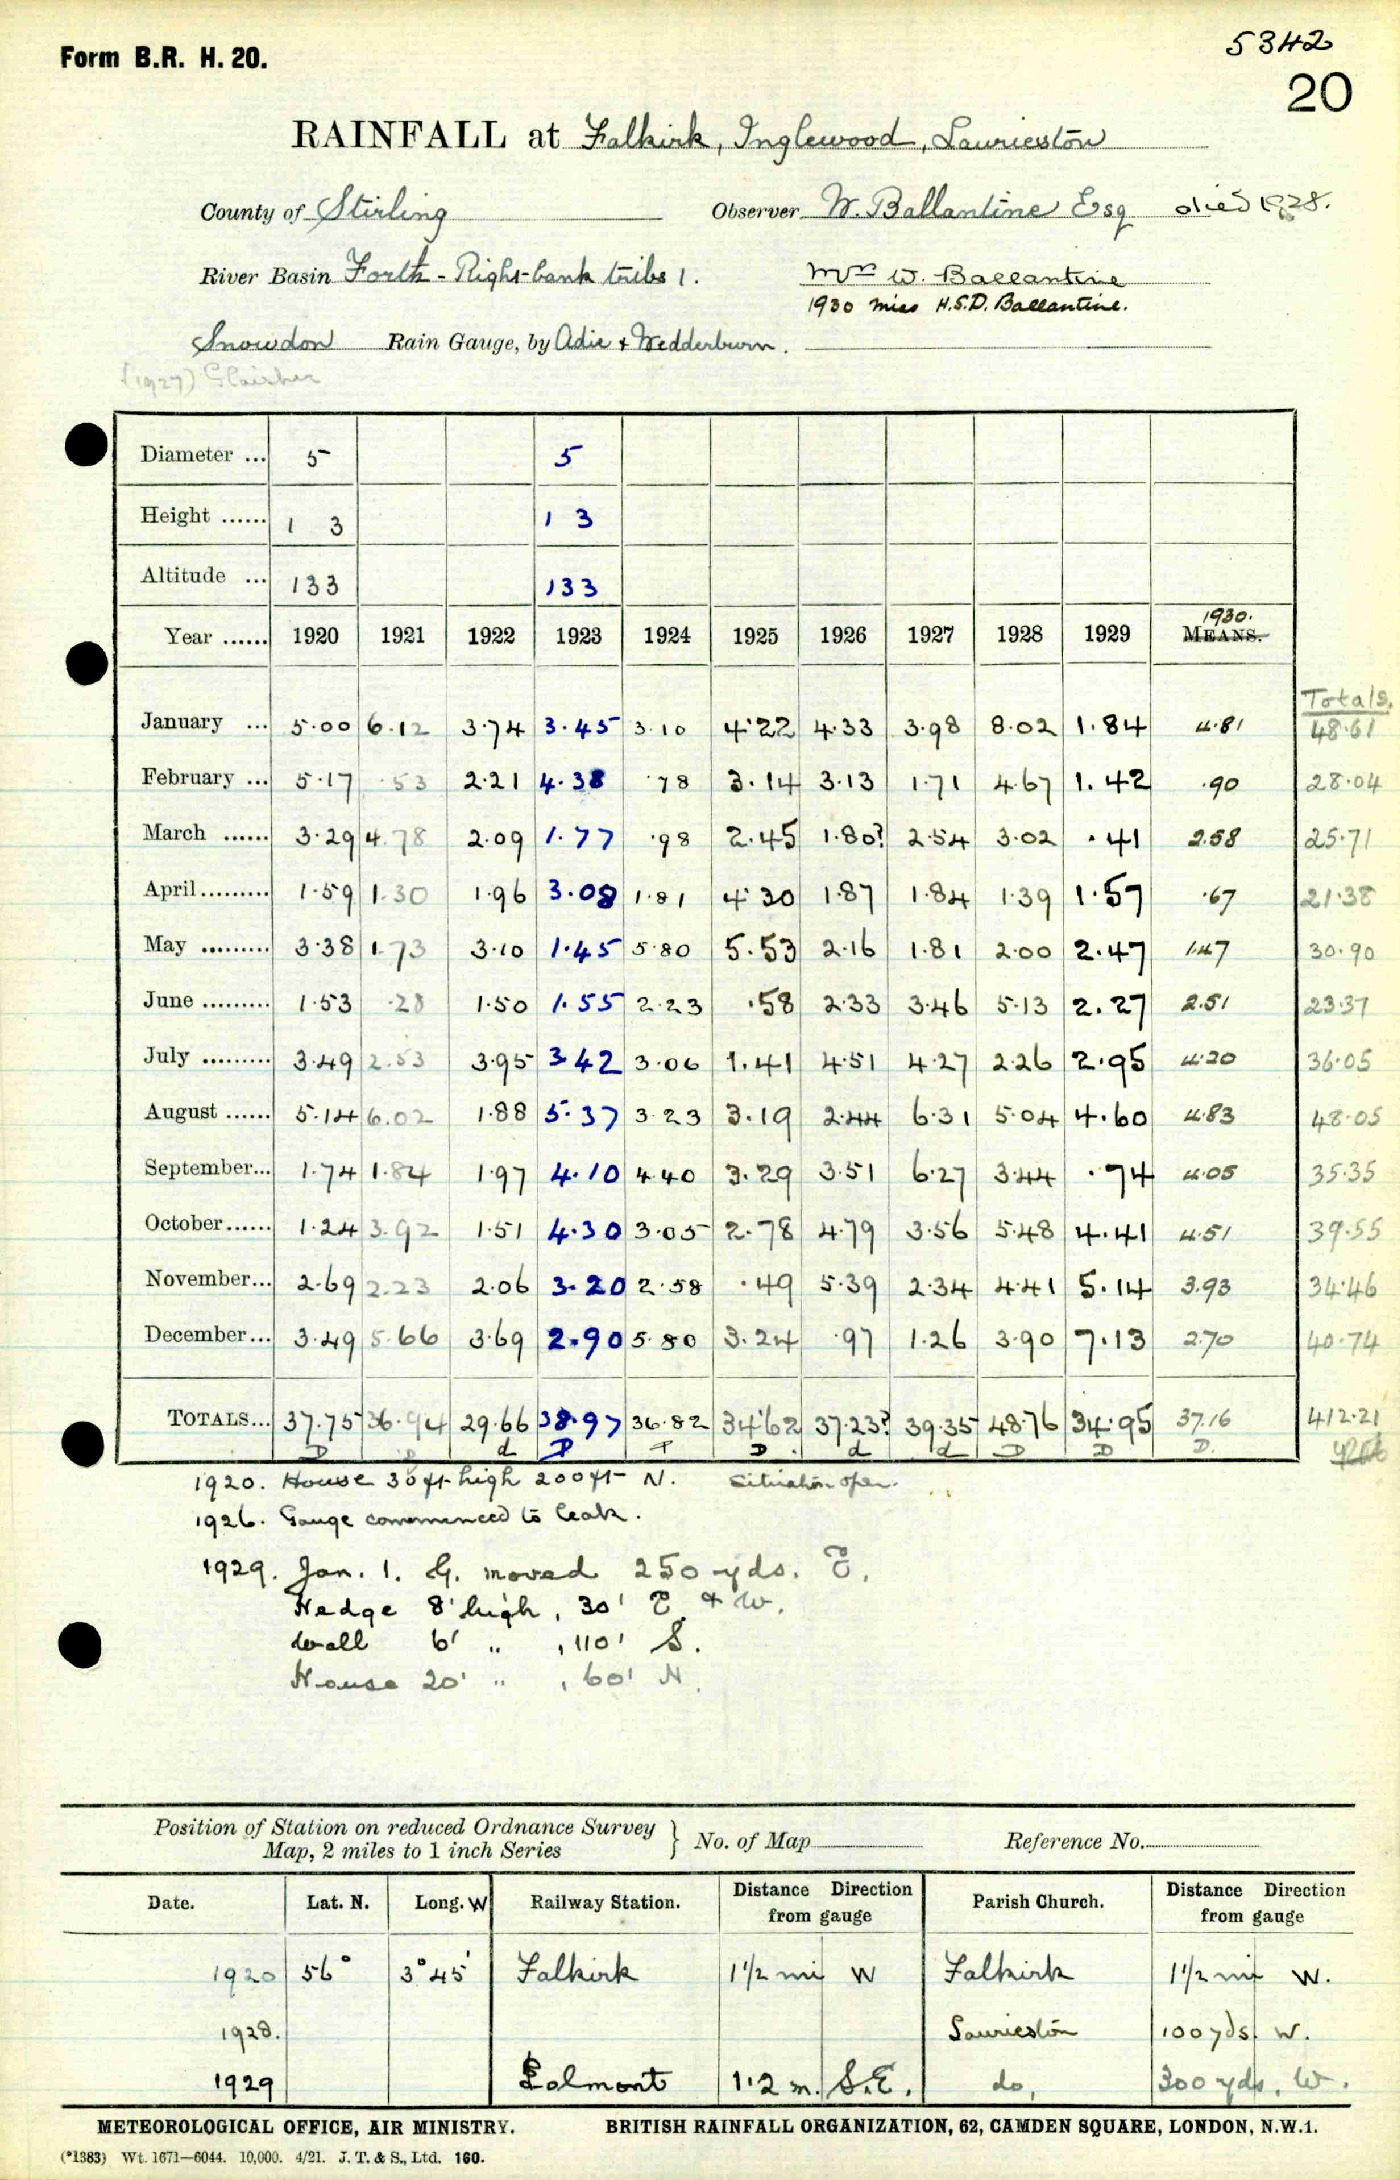 5342
Form B.R. H. 20.
20
RAINFALL at Falkirk, Inglewood, Laurieston
County of Stirling Observer W. Ballantine Esq died 1928.
River Basin Forth - Right-bank tribs 1. Mrs W. Ballantine
1930 Miss H.S.D. Ballantine.
Snowdon Rain Gauge, by Adie & Wedderburn.
(1927) Glaisher
Diameter ... 5 5
Height ...... 1 3 1 3
Altitude ... 133 133
1930.
Year ...... 1920 1921 1922 1923 1924 1925 1926 1927 1928 1929 MEANS.
Totals.
January ... 5.00 6.12 3.74 3.45 3.10 4.22 4.33 3.98 8.02 1.84 4.81 48.61
February ... 5.17 .53 2.21 4.38 .78 3.14 3.13 1.71 4.67 1.42 .90 28.04
March ...... 3.29 4.78 2.09 1.77 .98 2.45 1.80? 2.54 3.02 .41 2.58 25.71
April......... 1.59 1.30 1.96 3.08 1.81 4.30 1.87 1.84 1.39 1.57 .67 21.38
May ......... 3.38 1.73 3.10 1.45 5.80 5.53 2.16 1.81 2.00 2.47 1.47 30.90
June ......... 1.53 .28 1.50 1.55 2.23 .58 2.33 3.46 5.13 2.27 2.51 23.37
July ......... 3.49 2.53 3.95 3.42 3.06 1.41 4.51 4.27 2.26 2.95 4.20 36.05
August ...... 5.14 6.02 1.88 5.37 3.23 3.19 2.44 6.31 5.04 4.60 4.83 48.05
September... 1.74 1.84 1.97 4.10 4.40 3.29 3.51 6.27 3.44 .74 4.05 35.35
October...... 1.24 3.92 1.51 4.30 3.05 2.78 4.79 3.56 5.48 4.41 4.51 39.55
November... 2.69 2.23 2.06 3.20 2.58 .49 5.39 2.34 4.41 5.14 3.93 34.46
December... 3.49 5.66 3.69 2.90 5.80 3.24 .97 1.26 3.90 7.13 2.70 40.74
TOTALS... 37.75 36.94 29.66 38.97 36.82 34.62 37.23? 39.35 48.76 34.95 37.16 412.21
D d D D d d D D D.
1920. House 30 ft high 200 ft N. Situation open.
1926. Gauge commenced to leak.
1929. Jan. 1. G. moved 250 yds. E.
Hedge 8' high, 30' E. & W.
Wall 6' " , 110' S.
House 20' " , 60' N.
Position of Station on reduced Ordnance Survey Map, 2 miles to 1 inch Series } No. of Map Reference No.
Date. Lat. N. Long. W Railway Station. Distance Direction from gauge Parish Church. Distance Direction from gauge
1920 56° 3° 45' Falkirk 1 1/2 mi W Falkirk 1 1/2 mi W.
1928. Laurieston 100 yds. W.
1929 Polmont 1.2 m. S.E. do, 300 yds. W.
METEOROLOGICAL OFFICE, AIR MINISTRY. BRITISH RAINFALL ORGANIZATION, 62, CAMDEN SQUARE, LONDON, N.W.1.
(*1383) Wt. 1671—6044. 10,000. 4/21. J. T. & S., Ltd. 160.